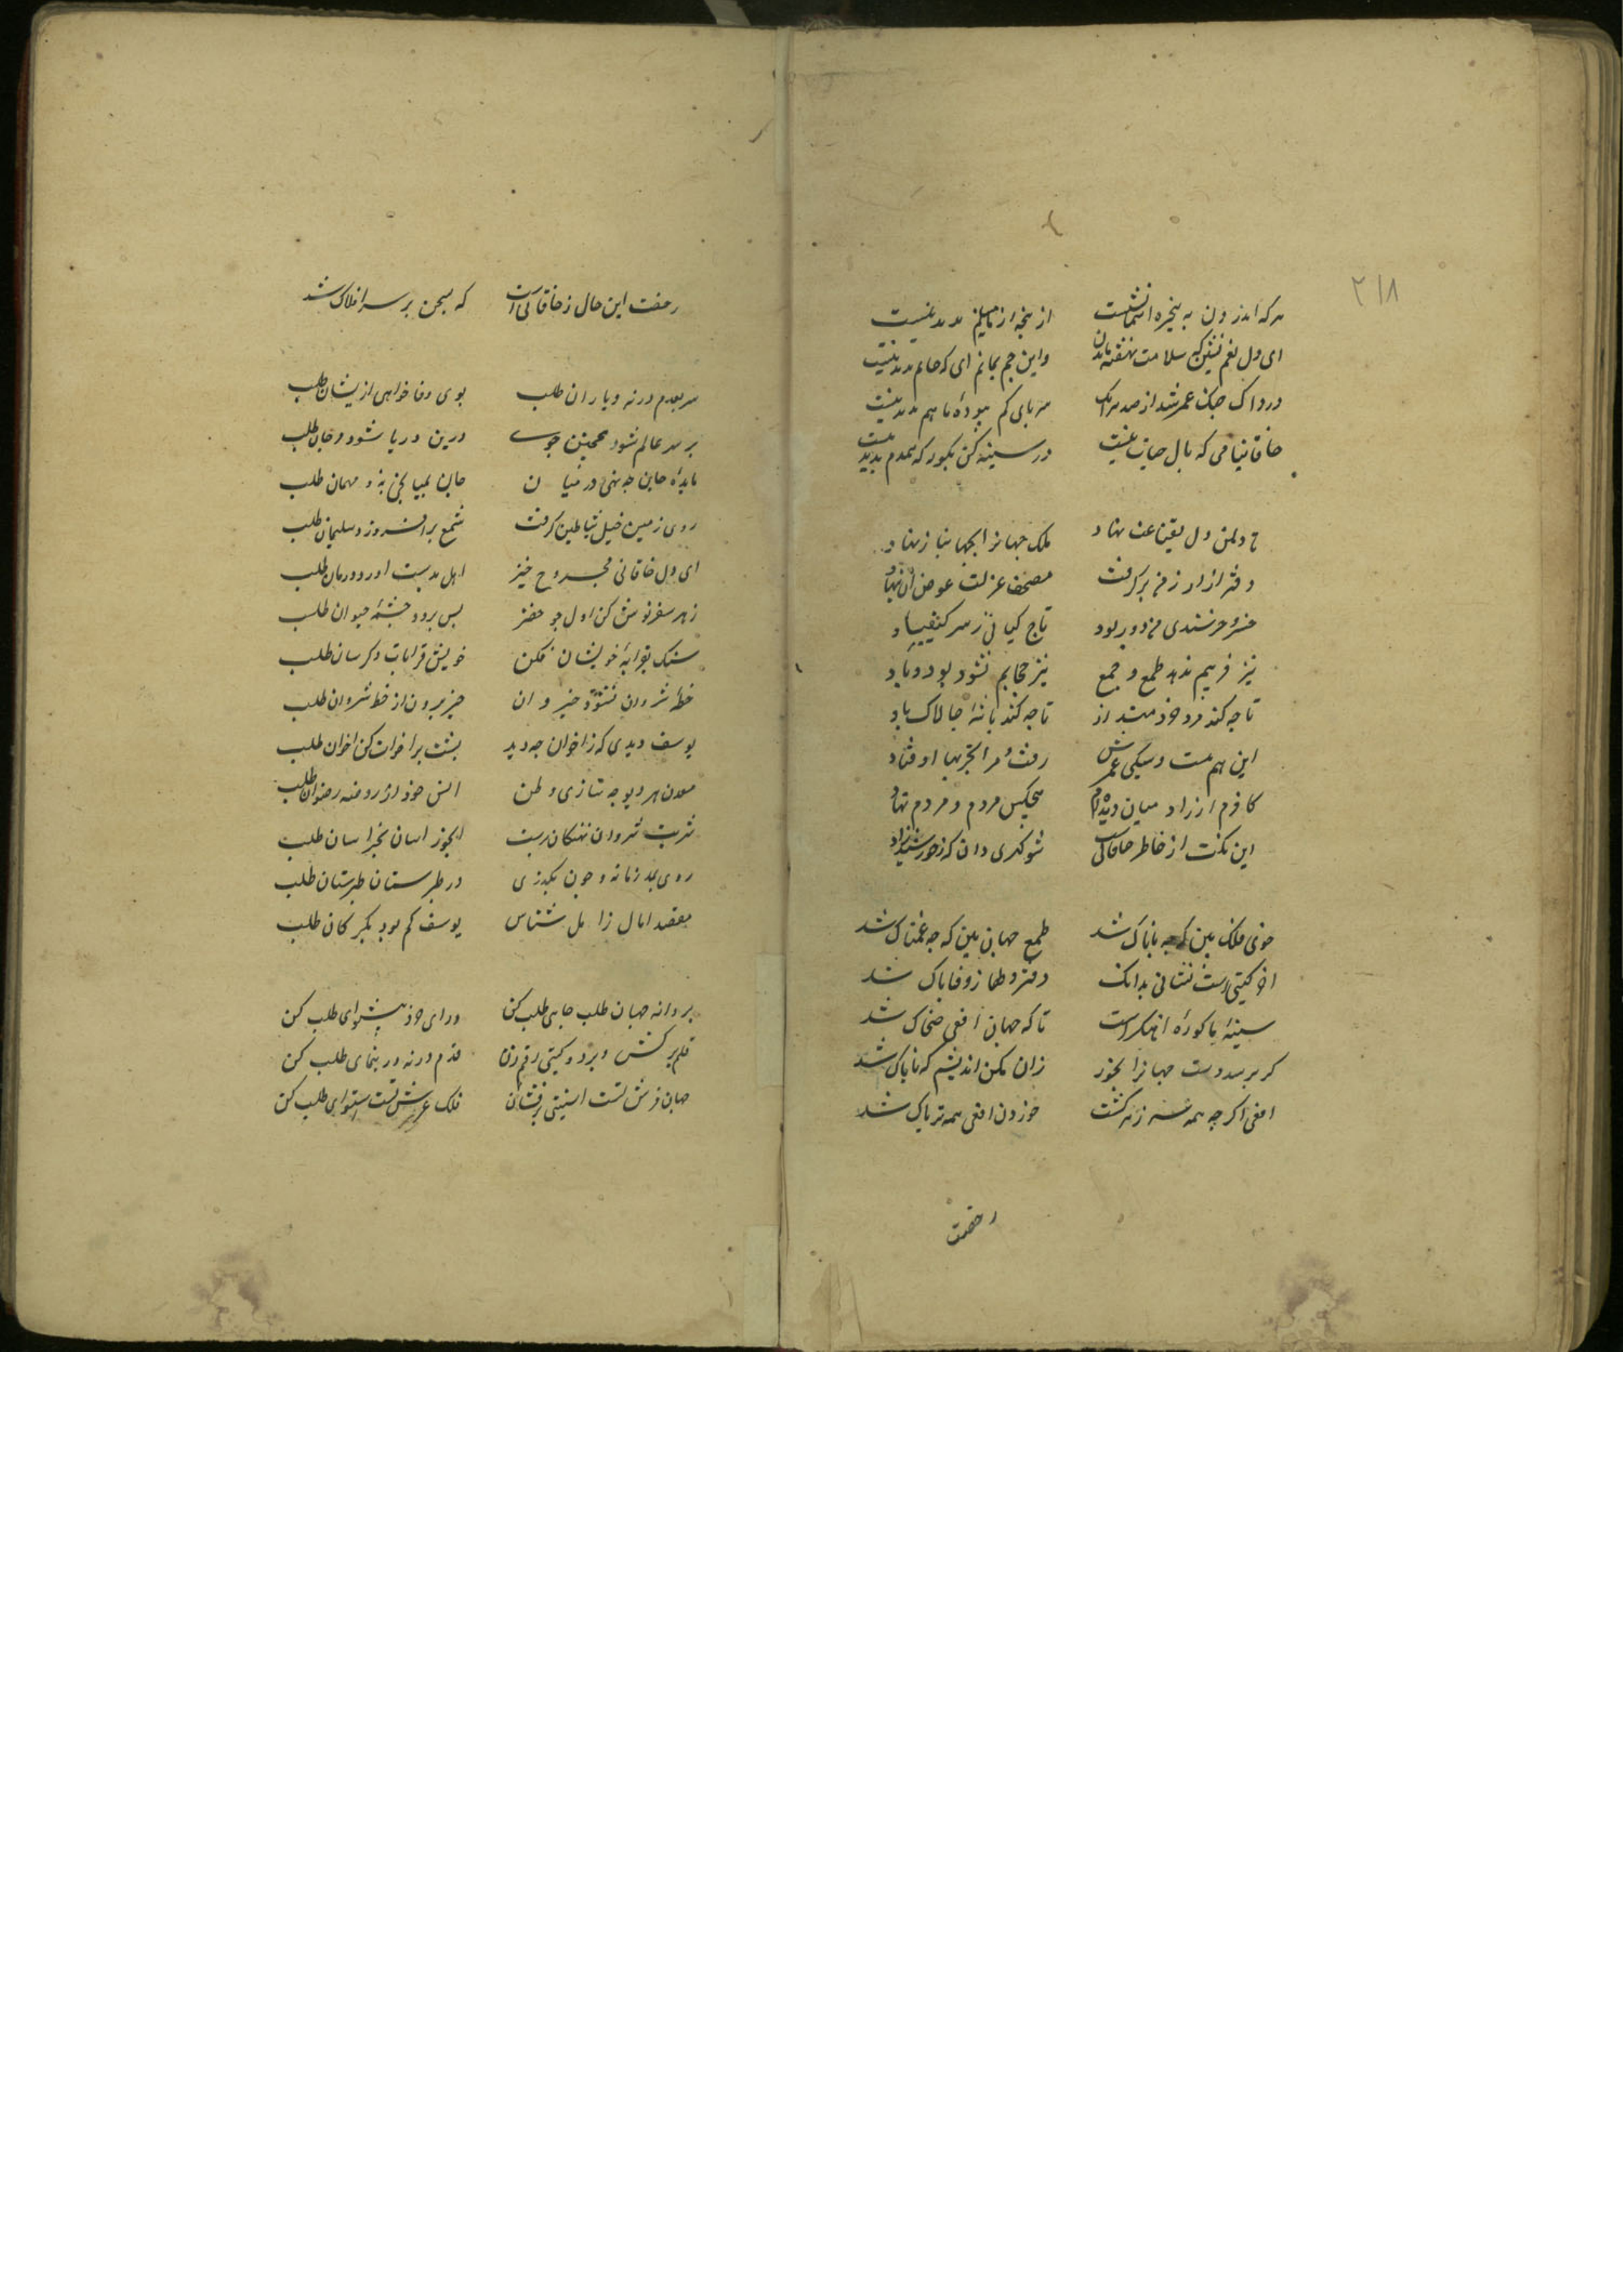 ۲۱۸
هر که اندرون به پنجره از پنجه از نامیلیم پدید نیست
ای دل بغم نشین که سلامت نهفته ماند وای جم بماتم ای که جام پدید نیست
درداک چنک عمر شد از صد سر بای کم بوده ما هم پدید نیست
خاقانیا می که بال حیات نیست در سینه کن بکور که همدم پدید نیست
تا دلمن دل بقناعت نهاد ملک جهانرا بجهانبان نهاد
دفتر از از بر من بر گرفت مصحف عزلت عوض آن نهاد
خسرو خرسندی من در ربود تاج کیانی ز سر کیقباد
نیز فریبم ندهد طمع و جمع نیز حجابم نشود بود و باد
تا چه کند مرد خردمند از تا چه کند باشهٔ چالاک باد
این همه هست و سبکی عمرش رفت مرا تجربها اوفتاد
کافرم ار زاد میان دیده‌ام هیچکس مردم و مردم نهاد
این نکت از خاطر خاقانی شو کهری دان که ز خورشید زاد
خوی فلک بین که چه ناباک شد طبع جهان بین که چه غمناک شد
اخر کیتی است نشانی بدانک دفتر دلها ز وفا پاک شد
سینهٔ ما کورهٔ اهنکر است تا که جهان افعی ضحاک شد
کر برسد دست جهانرا بخور زان مکن اندیشه که ناپاک شد
افعی اکر چه همه سر زهر کشت خوردن افعی همه تریاک شد
رخصت
رخصت این حال ز خاقانی است که سخن بر سر افلاک شد
سر بعدم در نه و یاران طلب بوی وفا خواهی ازیشان طلب
بر سر عالم شود همجنس جوی در بن دریا شو و درجان طلب
مایدهٔ جان چه نهی در میان جان بمیانجی نه و مهمان طلب
روی زمین خیل شیاطین کرفت شمع برافروز و سلیمان طلب
ای دل خاقانی مجروح خیز اهل بدست اور و درمان طلب
زهر سفر نوش کن اول جو خضر پس برو و چشمهٔ حیوان طلب
سنک بقرابهٔ خویشان فکن خویش و قرابات دکرسان طلب
خطهٔ شروان نشود خیروان خیر برون از خط شروان طلب
یوسف دیدی که ز اخوان چه دید پشت بر اخوان کن اخوان طلب
معدن هر دیو چه سازی وطن انس خود از روضهٔ رضوان طلب
شربت شروان نهنکان پست ابخور اسان بخراسان طلب
روی بدر زمانه و چون بکذری در طبرستان طربستان طلب
مقصد امال ز امل شناس یوسف کم بود بکرکان طلب
پروانه جهان طلب جایی طلب کن ورای خرد پیشوای طلب کن
قلم برکش و بر دو کیتی رقم زن قدم در نه و رهنمای طلب کن
جهان فرش تست استینی برفشان فلک عرش تست استوای طلب کن